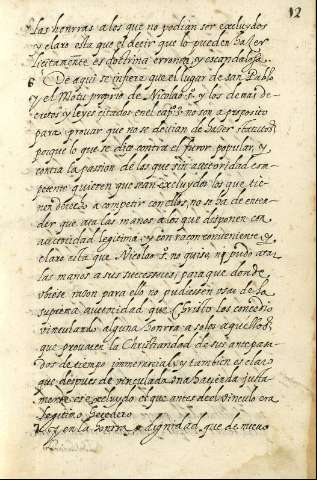 12
las honrras a los que no podian ser excluydos
y claro esta que el decir que lo pueden hazer
licitamente es doctrina erronea, y escandalosa
6 De aqui se infiere que el lugar de san Pablo
y el Motu proprio de Nicolao 5º y los demas de
cretos y leyes citados en el cap. 3 no son a proposito
para provar que no se devian de hazer statutos
porque lo que se dice contra el furor popular, y
contra la passion de los que sin auctoridad com
petente quieren que sean excluydos los que tie
nen derecho a competir con ellos, no se ha de enten
der que ata las manos a los que disponen con
auctoridad legitima, y con raçon conveniente, y
claro esta que Nicolao 5. no quiso, ni pudo atar
las manos a sus successores, para que donde
ubiese rason para ello no pudiesen usar de la
suprema auctoridad que Christo les concedio
vinculando alguna honrra a solos aquellos
que provasen la Christiandad de sus ante pasa
dos de tiempo immemorial, y tambien es claro
que despues de vinculada una hazienda justa
mente es excluydo el que antes del vinculo era
legitimo heredero
y en la honrra o dignidad que de nuevo